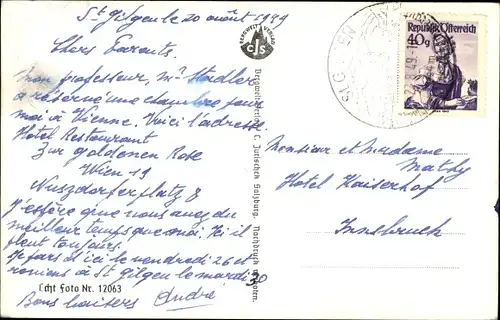 St Gilgen le 20 août 1949
Chers Parents,
Mon professeur, Mr Stadler
a réservé une chambre pour
moi à Vienne. Voici l'adresse.
Hotel Restaurant
Zur goldenen Rose
Wien 19
Nuszdorferplatz 8
J'espère que vous avez du
meilleur temps que moi. Ici il
pleut toujours.
Je pars d'ici le vendredi 26 et
reviens à St Gilgen le mardi 30
Bons baisers André
Echt Foto Nr. 12063
BERGWELT VERLAG
CJS
Bergweltverlag C. Jurischek Salzburg. Nachdruck verboten.
Republik Österreich
40g
ST. GILGEN
Monsieur et Madame
Mathy
Hotel Kaiserhof
Innsbruck